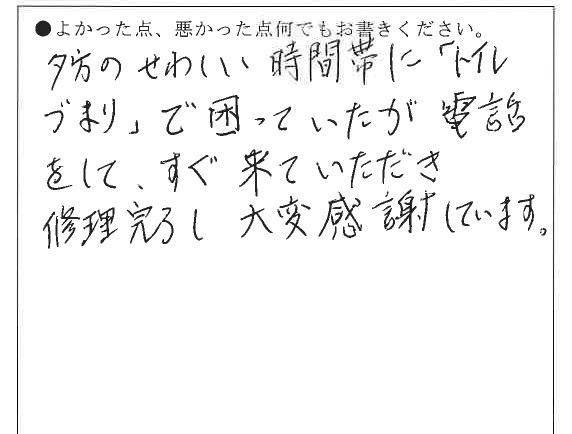 ●よかった点、悪かった点何でもお書きください。
夕方のせわしい時間帯に「トイレ
づまり」で困っていたが電話
をして、すぐ来ていただき
修理完了し大変感謝しています。